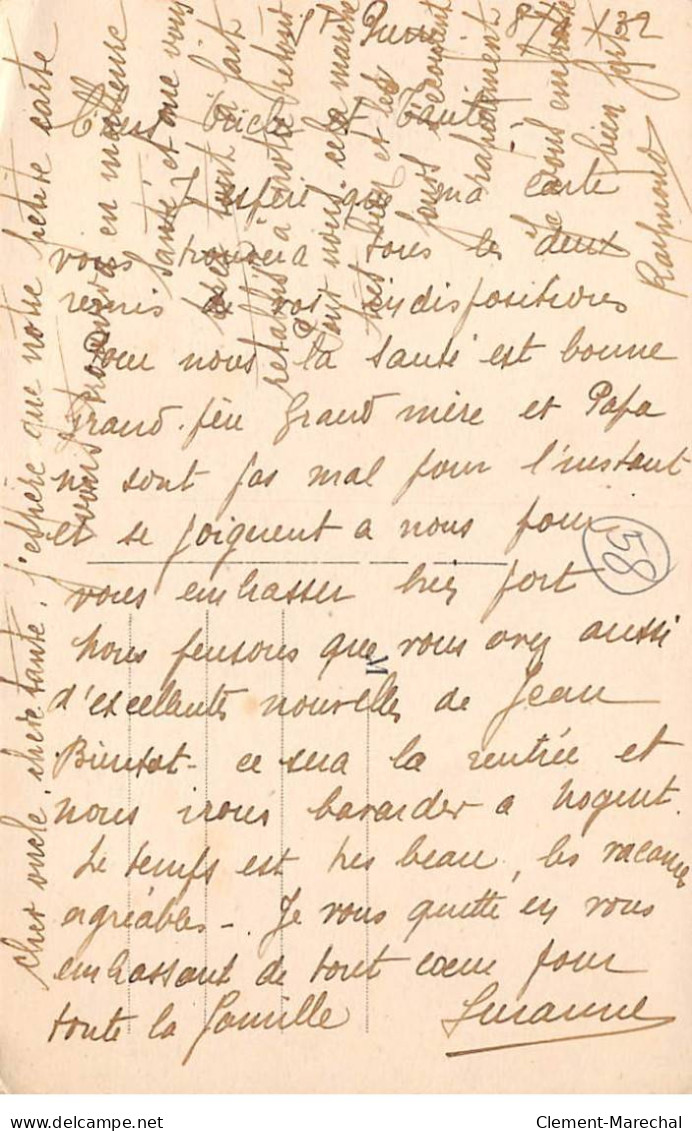 St Pierre 8/
Chers Oncle et Tante
J'espère que ma carte
vous trouvera tous les deux
remis de vos indispositions
Pour nous la santé est bonne
Grand-père Grand mère et Papa
ne sont pas mal pour l'instant
et se joignent a nous pour
vous embrasser bien fort
Nous pensons que vous avez aussi
d'excellentes nouvelles de Jean
Bientot ce sera la rentrée et
nous irons bavarder a Nogent.
Le temps est tres beau, les vacances
agréables - Je vous quitte en vous
embrassant de tout coeur pour
toute la famille Suzanne
cher oncle, chere tante, J'espère que notre petite carte
vous trouvera en meilleure
santé et que vous
tout a fait
retablis a notre retour
Pour nous cela marche
très bien et les
jours s'écoulent
rapidement
Je vous embrasse
bien fort
Raymond
58
M
Clement-Marechal